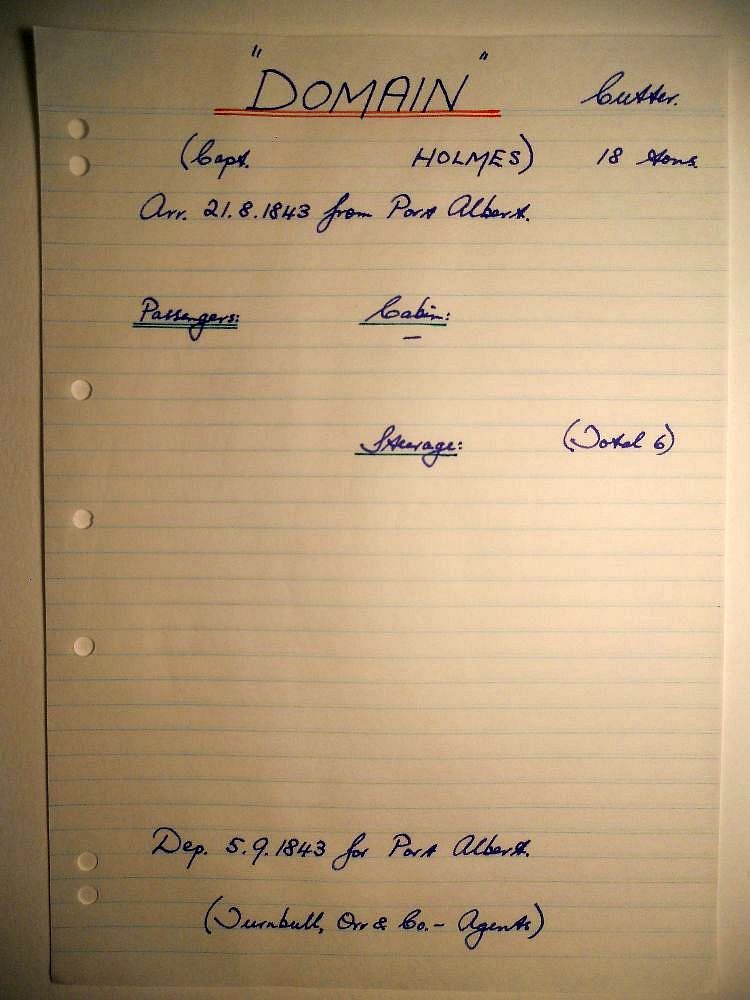 "DOMAIN" Cutter.
(Capt. HOLMES) 18 tons.
Arr. 21.8.1843 from Port Albert.
Passengers: Cabin:
—
Steerage: (Total 6)
Dep. 5.9.1843 for Port Albert.
(Turnbull, Orr & Co. - Agents)